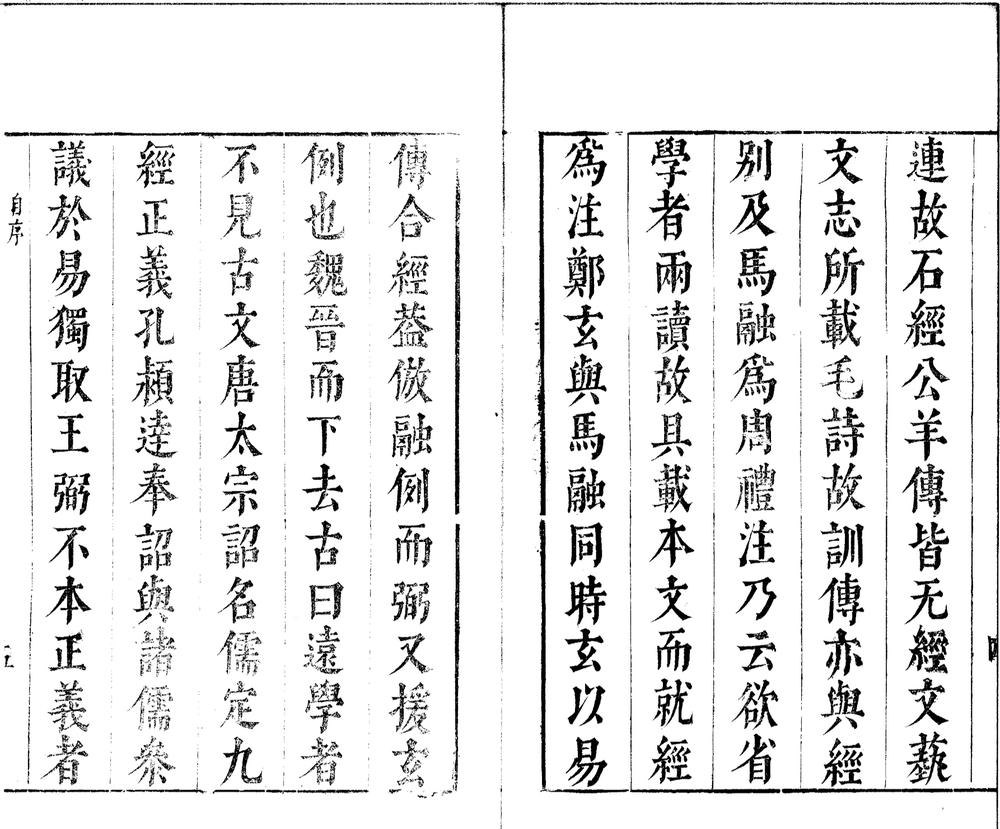 連故石經公羊傳皆无經文蓺
文志所載毛詩故訓傳亦與經
别及馬融爲周禮注乃云欲省
學者兩讀故具載本文而就經
爲注鄭玄與馬融同時玄以易
傳合經葢倣融例而弼又援玄
例也魏晉而下去古曰遠學者
不見古文唐太宗詔名儒定九
經正義孔頴逹奉詔與諸儒叅
議於易獨取王弼不本正義者
自序
五
四